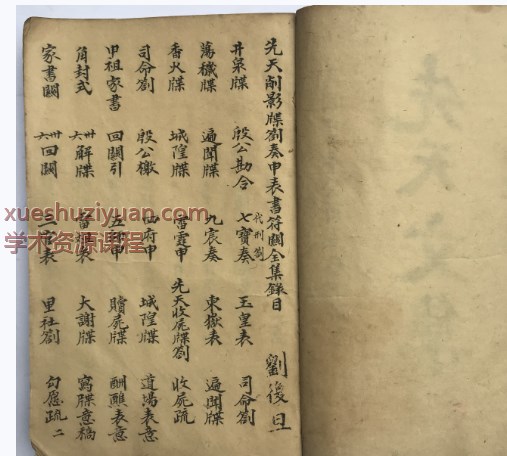 先天削影牒劄奏申表書符關全集錄目 劉後旦
井泉牒 殷公勘合 代刑劄 七寶奏 玉皇表 司命劄
蕩穢牒 遍聞牒 九宸奏 東嶽表 遍聞牒
香火牒 城隍牒 雷霆申 先天收屍牒劄 收屍疏
司命劄 殷公檄 四府申 城隍牒 道場表意
中祖家書 回關引 五 申 贖屍牒 酬醮表意
角封式 六卅解牒 表 大謝牒 寫牒意稿
家書關 六卅回關 三官表 里社劄 勾愿疏 二
xueshuziyuan.com
学术资源课程